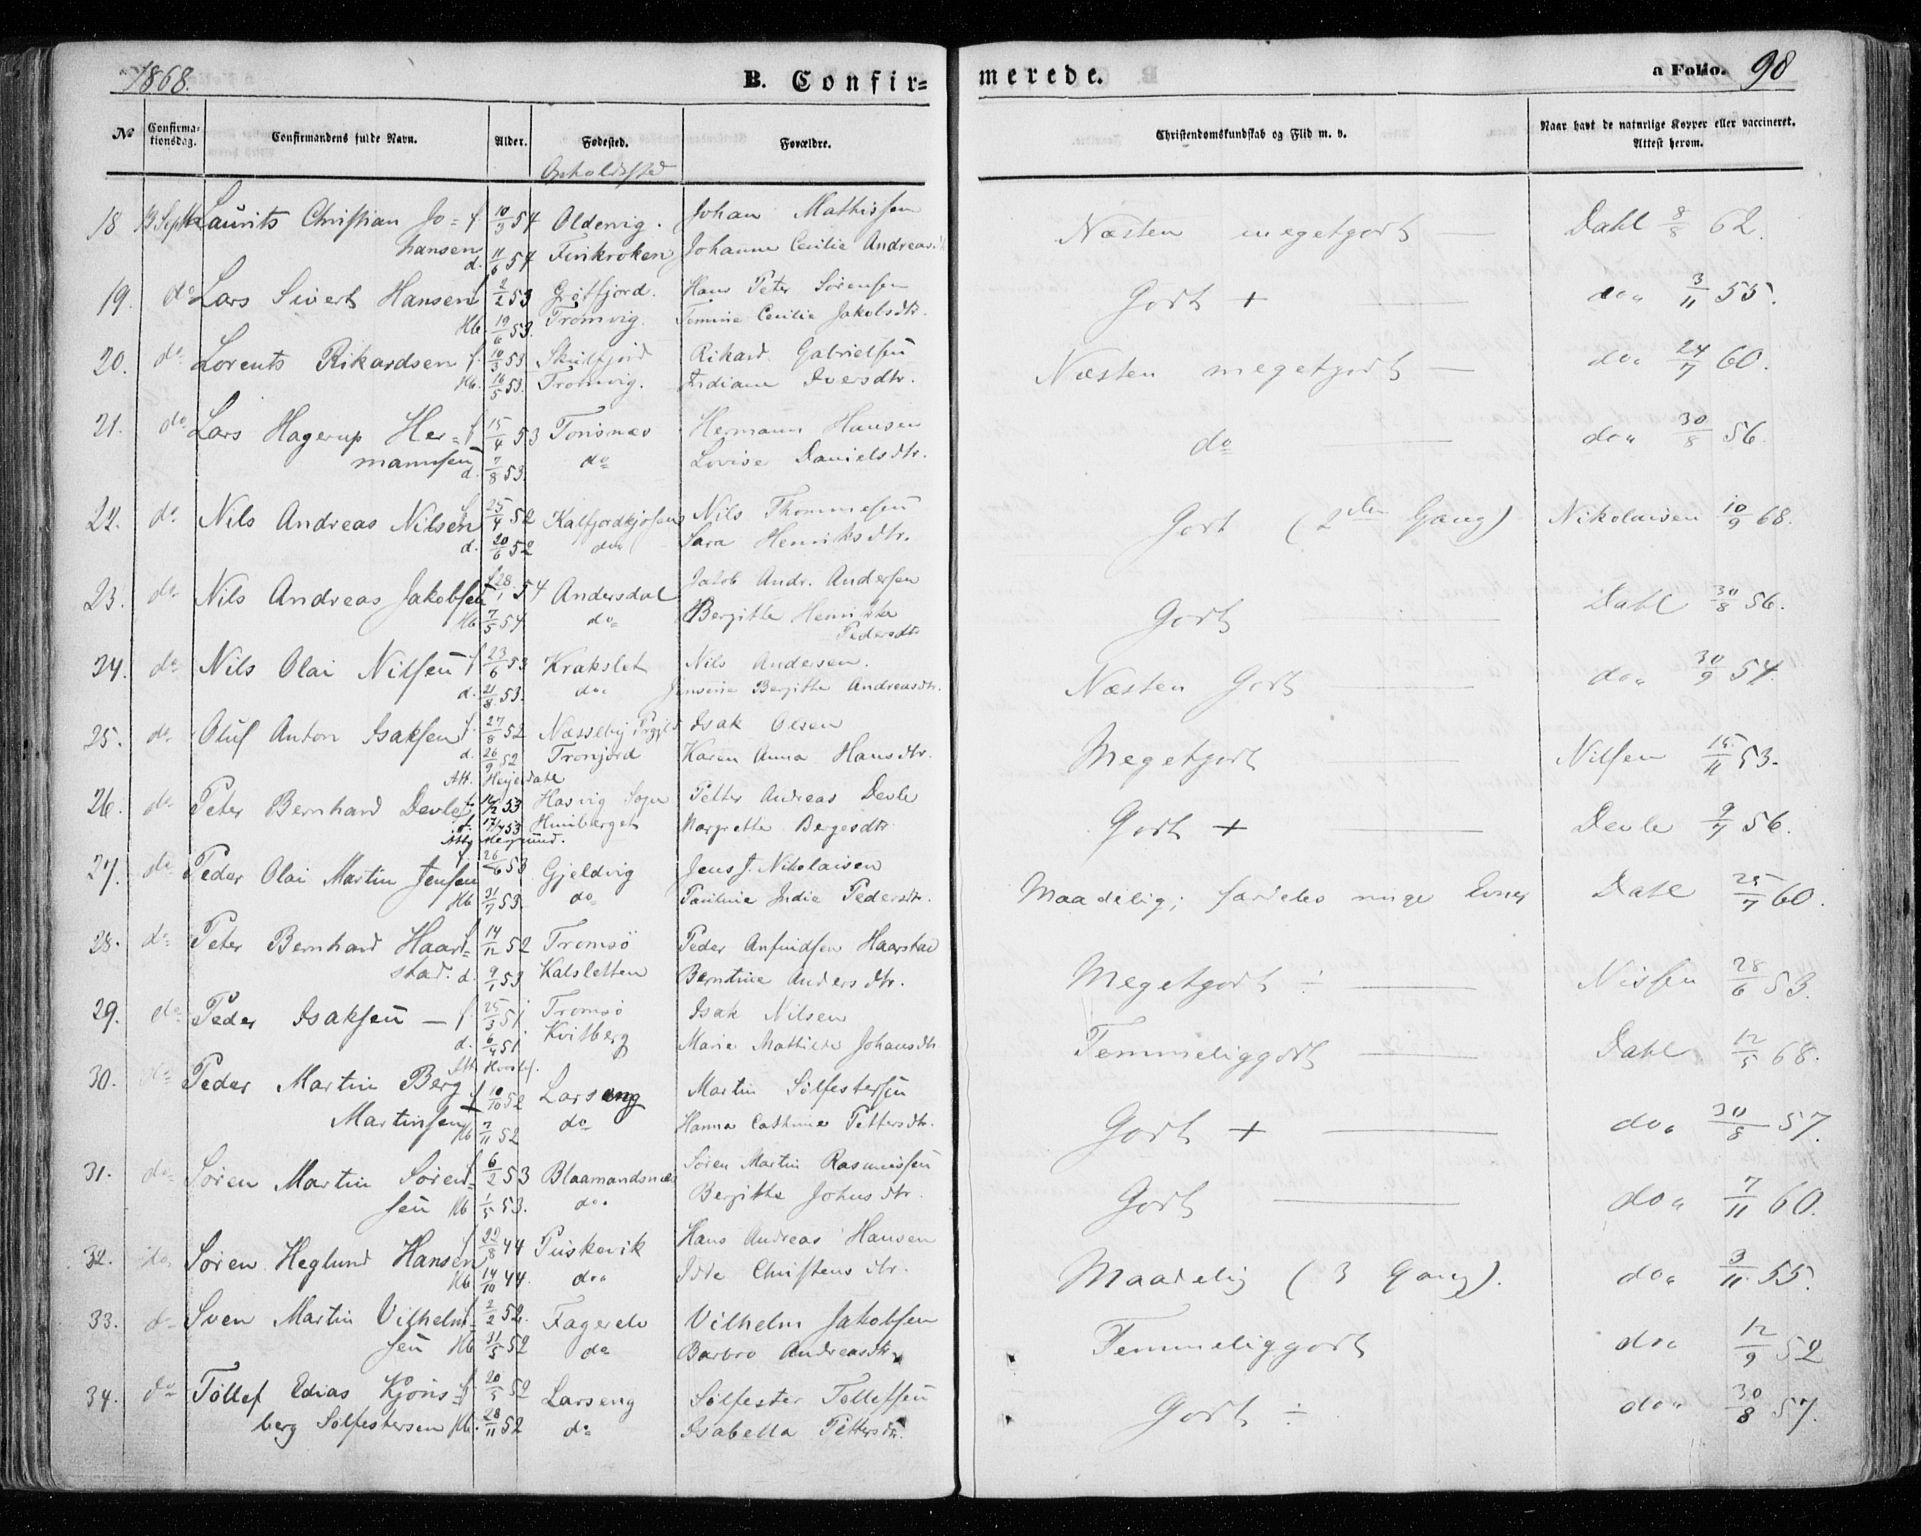 1868.
B. Confir=
merede.
a Folio. 98
No
Confirma-
tionsdag.
Confirmandens fulde Navn.
Alder.
Fødested.
Opholdssted
Forældre.
Christendomskundskab og Flid m. v.
Naar havt de naturlige Kopper eller vaccineret.
Attest herom.
18 Septbr Laurits Christian Jo= f 10/3 54 Oldervig. Johan Mathissen Næsten megetgodt — Dahl 8/8 62.
hansen d. 11/6 54 Finkroken Johanne Cecilie Andreasd
19. do Lars Sivert Hansen f 2/2 53 Grøtfjord. Hans Peter Sørensen Godt + — do„ 3/11 55.
Hb. 19/6 53. Tromvig. Cecilie Jakobsdtr.
20. do Lorents Rikardsen f. 10/3 53 Skulsfjord Rikard Gabrielsen Næsten megetgodt — do„ 24/7 60.
Hb. 16/5 53. Tromvig. Iversdtr.
21. do Lars Hagerup Her= f 15/4 53 Tonsnæs Hermann Hansen do — do„ 30/8 56.
mannsen d. 7/8 53. do Lovise Danielsdtr.
22. do Nils Andreas Nilsen f 25/4 52 Kalfjordkjosen Nils Thommesen Godt (2den Gang) Nikolaisen 10/9 68.
d. 20/6 52 do„ Sara Henriksdtr.
23. do Nils Andreas Jakobsen f 28/1 54 Andersdal Jakob Andr. Andersen Godt — Dahl 30/8 56.
Hb 7/5 54 do Bergitte Henrikke
Pedersdtr
24. do Nils Olai Nilsen f 23/6 53 Krakslet Nils Andersen. Næsten Godt — do„ 30/9 54.
d. 21/8 53. do. Jensine Bergitte Andreasdtr.
25. do Oluf Anton Isaksen f. 27/8 52 Næsseby Isak Olsen Megetgodt — Nilsen 15/11 53.
d. 26/9 52 Tronjord Karen Anna Hansdtr.
Att. Hejerdahl
26. do Peter Bernhard Devle f 16/2 53 Hasvig Sogn Petter Andreas Devle Godt + — Devle 9/7 56.
d. 17/4 53 Margrethe Bergesdtr
27. do Peder Olai Martin Jensen f. 26/6 53 Gjeldvig Jens J. Nikolaisen Maadelig; særdeles ringe Evner Dahl 25/7 60.
Hb 31/7 53. do Pauline Indie Pedersdtr.
28. do Peter Bernhard Haar= f 14/12 52 Tromsø Peder Anfindsen Haarstad Megetgodt ÷ — Nissen 28/6 53.
stad. d. 9/1 53 Kalsletten Berntine Andersdtr.
29. do Peder Isaksen — f. 25/3 51 Tromsø Isak Nilsen Temmeliggodt — Dahl 12/5 68.
d. 6/4 51 Kvitberg Marie Mathilde Johansdtr
30. do Peder Martin Berg f 10/10 52 Larseng Martin Sølfestersen Godt + — do„ 30/8 57.
Martinsen Hb 7/11 52 do Hanna Cathrine Pettersdtr.
31. do Søren Martin Søren= f 6/2 53 Blaamandsnæs Søren Martin Rasmussen Godt — do„ 7/11 60.
sen Hb 1/5 53. do. Bergitte Johnsdtr.
32. do Søren Heglund Hansen f 22/8 44 Puskevik Hans Andreas Hansen Maadelig (3 Gang). do„ 3/11 55.
Hb 14/10 44. do„ Idde Christensdtr.
33. do Sven Martin Vilhelm= f 2/2 52. Fagerelv Vilhelm Jakobsen Temmeliggodt do„ 12/9 52
sen Hb 31/5 52 do Barbro Andreasdtr.
34. do Tollef Edias Kjøns= f 20/5 52 Larseng Sølfester Tollefsen Godt ÷ do„ 30/8 57.
berg Sølfestersen Hb. 28/11 52 do Isabella Pettersdtr.